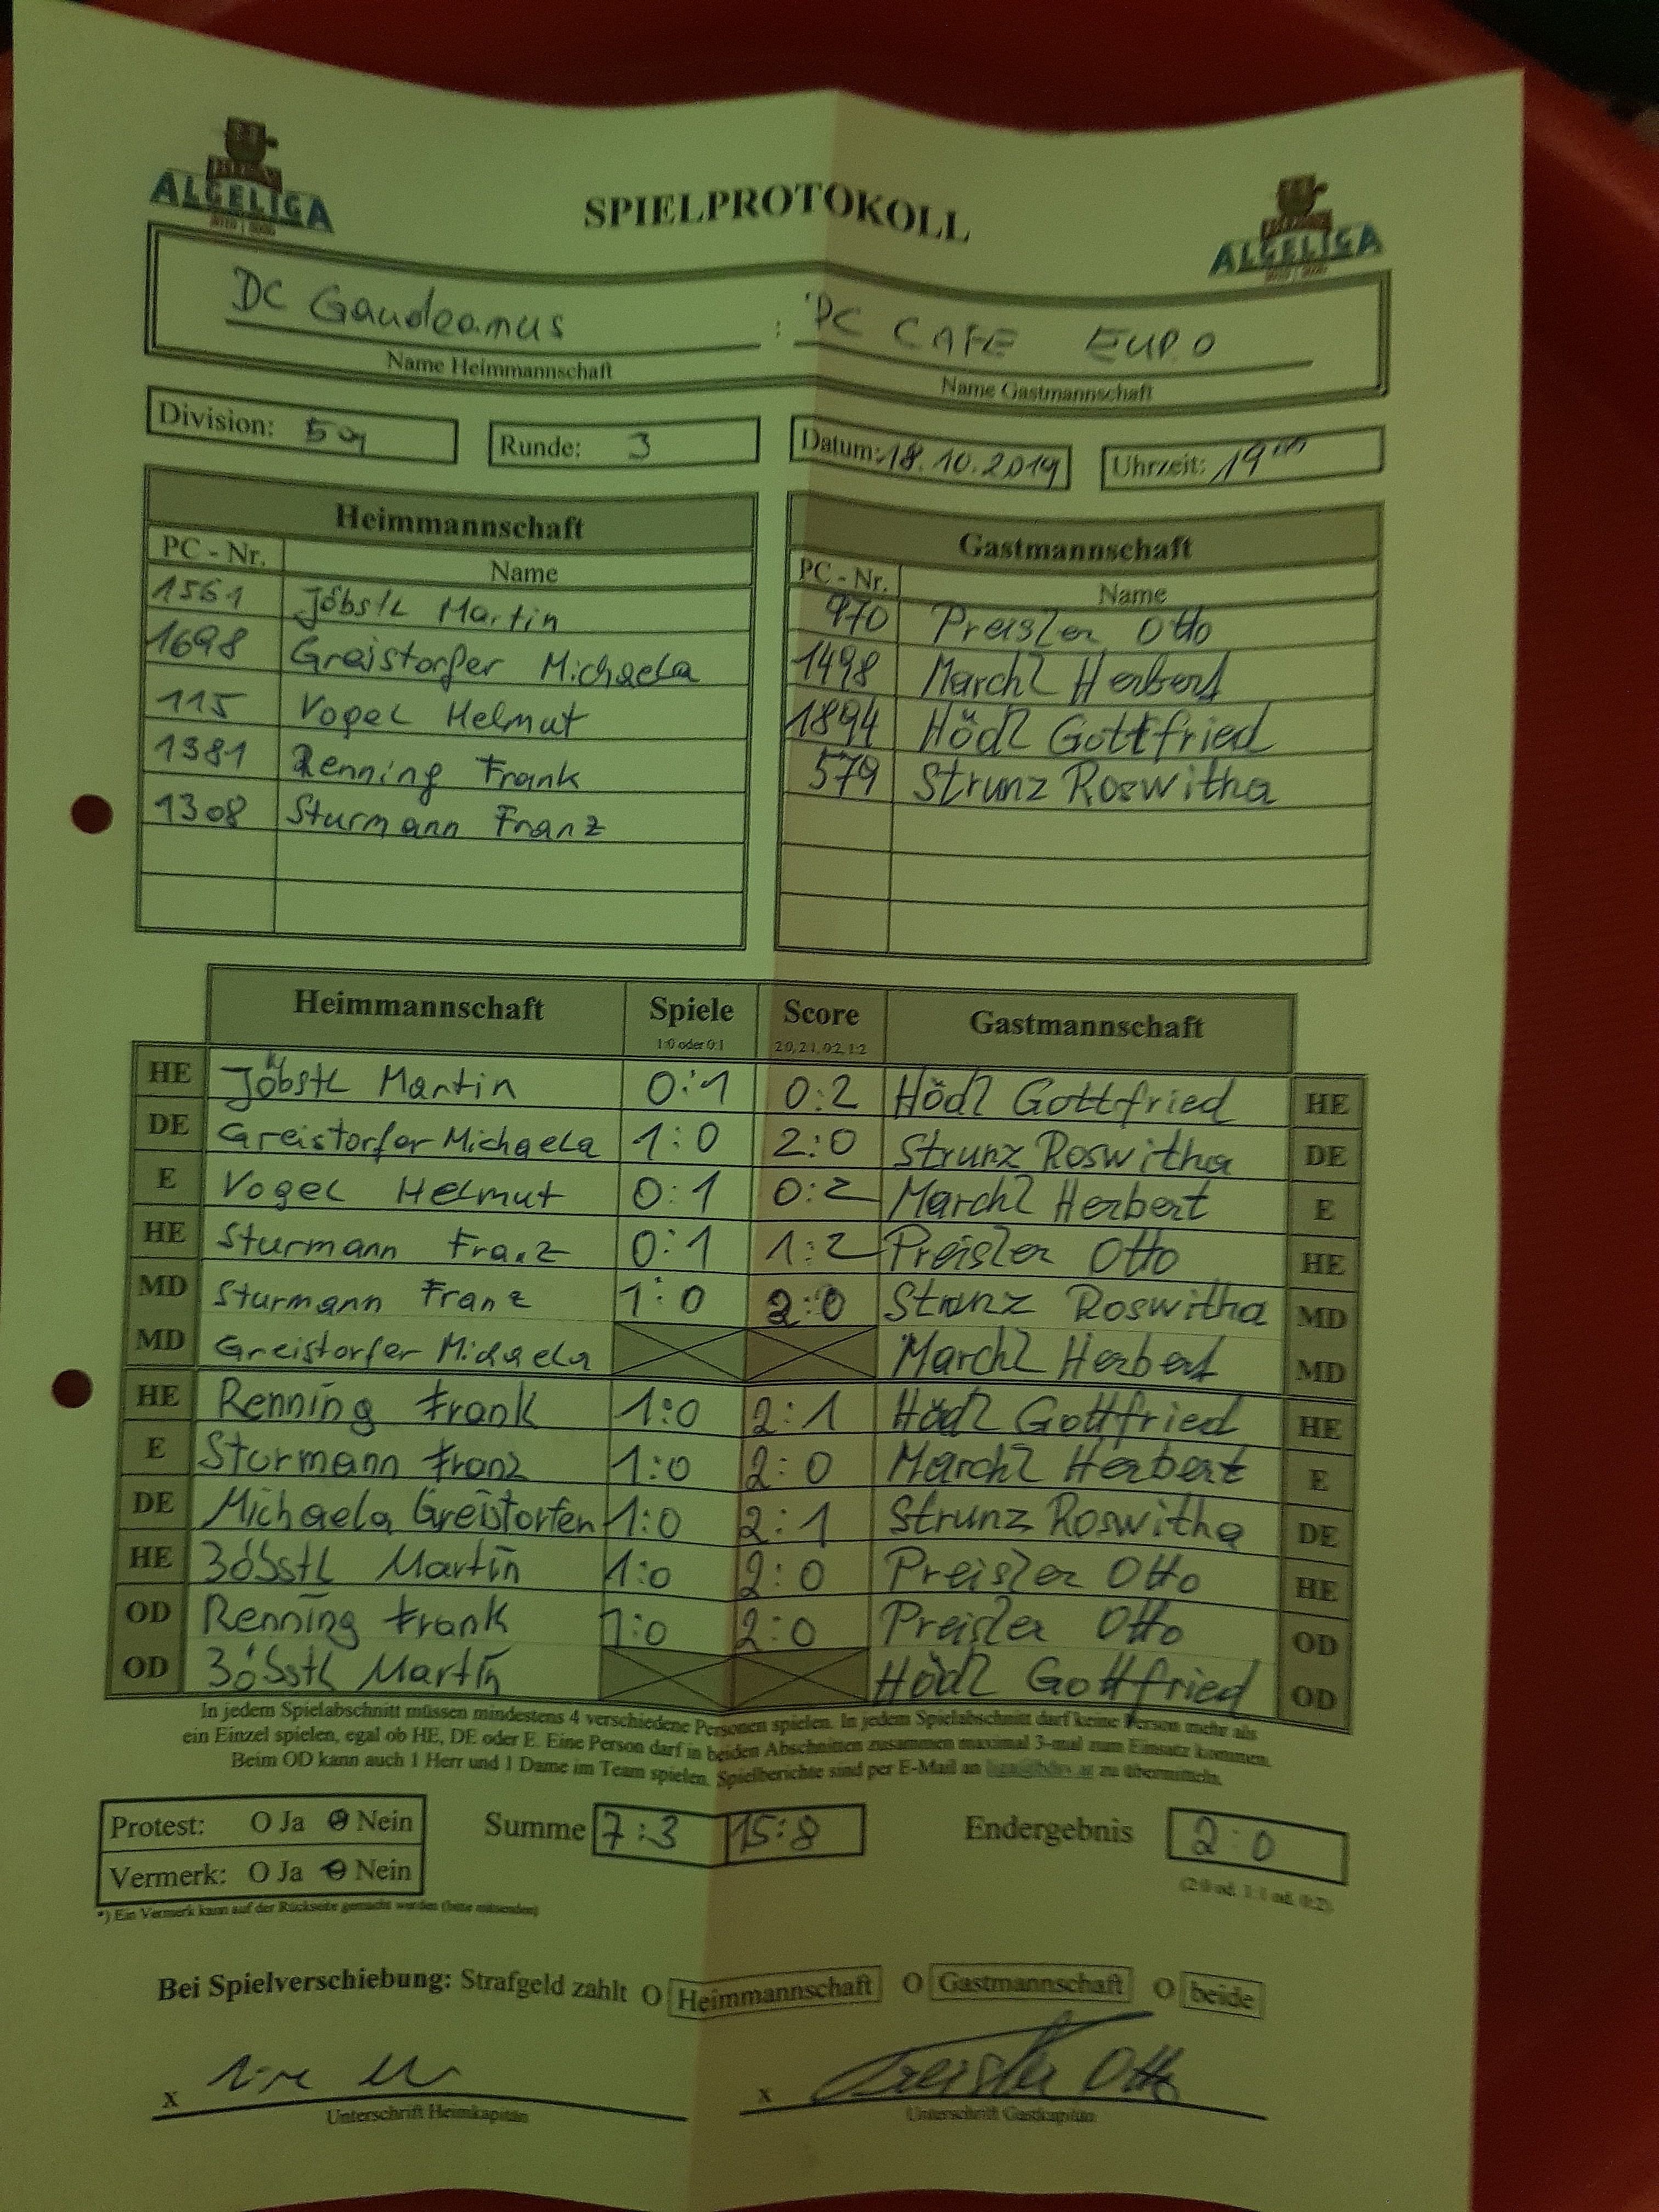 ALGELIGA
SPIELPROTOKOLL
ALGELIGA
DC Gaudeamus : DC CAFE EURO
Name Heimmannschaft Name Gastmannschaft
Division: 5a Runde: 3 Datum: 18.10.2019 Uhrzeit: 19
Heimmannschaft Gastmannschaft
PC - Nr. Name PC - Nr. Name
1561 Jöbstl Martin 970 Preisler Otto
1698 Greistorfer Michaela 1498 Marchl Herbert
115 Vogel Helmut 1894 Hödl Gottfried
1381 Renning Frank 579 Strunz Roswitha
1308 Sturmann Franz
Heimmannschaft Spiele Score Gastmannschaft
1:0 oder 0:1 2:0, 2:1, 0:2, 1:2
HE Jöbstl Martin 0:1 0:2 Hödl Gottfried HE
DE Greistorfer Michaela 1:0 2:0 Strunz Roswitha DE
E Vogel Helmut 0:1 0:2 Marchl Herbert E
HE Sturmann Franz 0:1 1:2 Preisler Otto HE
MD Sturmann Franz 1:0 2:0 Strunz Roswitha MD
MD Greistorfer Michaela Marchl Herbert MD
HE Renning Frank 1:0 2:1 Hödl Gottfried HE
E Sturmann Franz 1:0 2:0 Marchl Herbert E
DE Michaela Greistorfer 1:0 2:1 Strunz Roswitha DE
HE Jöbstl Martin 1:0 2:0 Preisler Otto HE
OD Renning Frank 1:0 2:0 Preisler Otto OD
OD Jöbstl Martin Hödl Gottfried OD
In jedem Spielabschnitt müssen mindestens 4 verschiedene Personen spielen. In jedem Spielabschnitt darf keine Person mehr als
ein Einzel spielen, egal ob HE, DE oder E. Eine Person darf in beiden Abschnitten zusammen maximal 3-mal zum Einsatz kommen.
Beim OD kann auch 1 Herr und 1 Dame im Team spielen. Spielberichte sind per E-Mail an zu übermitteln.
Protest: O Ja O Nein Summe 7:3 15:8 Endergebnis 2:0
Vermerk: O Ja O Nein
(2:0 od. 1:1 od. 0:2)
*) Ein Vermerk kann auf der Rückseite gemacht werden (bitte mitsenden)
Bei Spielverschiebung: Strafgeld zahlt O Heimmannschaft O Gastmannschaft O beide
x x Preisler Otto
Unterschrift Heimkapitän Unterschrift Gastkapitän